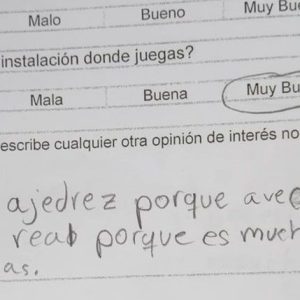 Malo Bueno Muy Bue
instalación donde juegas?
Mala Buena Muy Bu
escribe cualquier otra opinión de interés no
ajedrez porque avec
real porque es much
as.